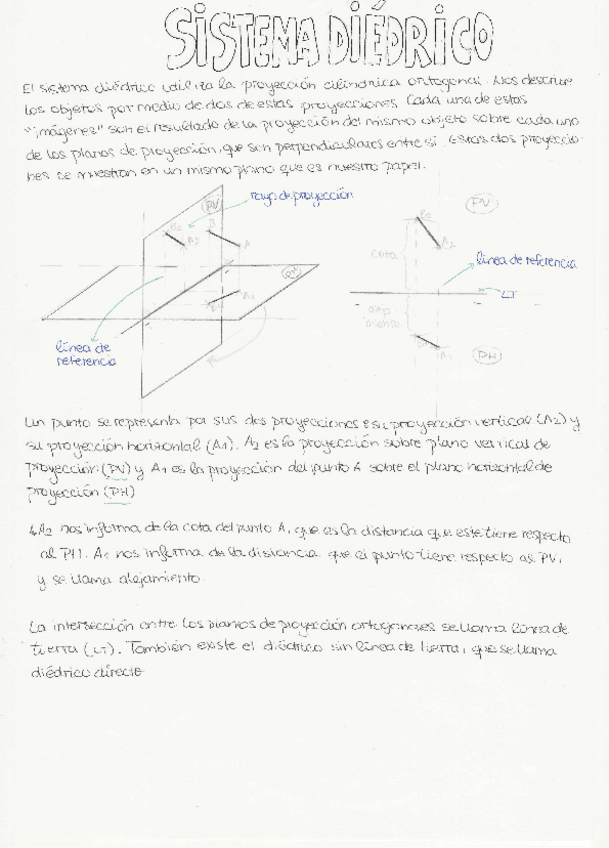 SISTEMA DIÉDRICO
El sistema diédrico utiliza la proyección cilíndrica ortogonal. Nos describe
los objetos por medio de dos de estas proyecciones. Cada una de estas
"imágenes" son el resultado de la proyección del mismo objeto sobre cada uno
de los planos de proyección, que son perpendiculares entre sí. Estas dos proyeccio-
nes se muestran en un mismo plano que es nuestro papel.
PV
rayo de proyección
B2
A2
B
A
PH
B1
A1
línea de
referencia
B2
PV
A2
cota
línea de referencia
LT
aleja
miento
B1
A1
PH
Un punto se representa por sus dos proyecciones: su proyección vertical (A2) y
su proyección horizontal (A1). A2 es la proyección sobre plano vertical de
proyección (PV) y A1 es la proyección del punto A sobre el plano horizontal de
proyección (PH)
A2 nos informa de la cota del punto A, que es la distancia que este tiene respecto
al PH. A1 nos informa de la distancia que el punto tiene respecto al PV,
y se llama alejamiento.
La intersección entre los planos de proyección ortogonales se llama línea de
tierra (LT). También existe el diédrico sin línea de tierra, que se llama
diédrico directo